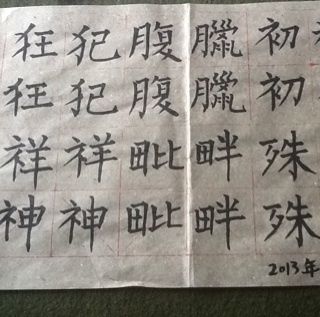 狂犯腹臘初
狂犯腹臘初
祥祥毗畔殊
神神毗畔殊
2013年